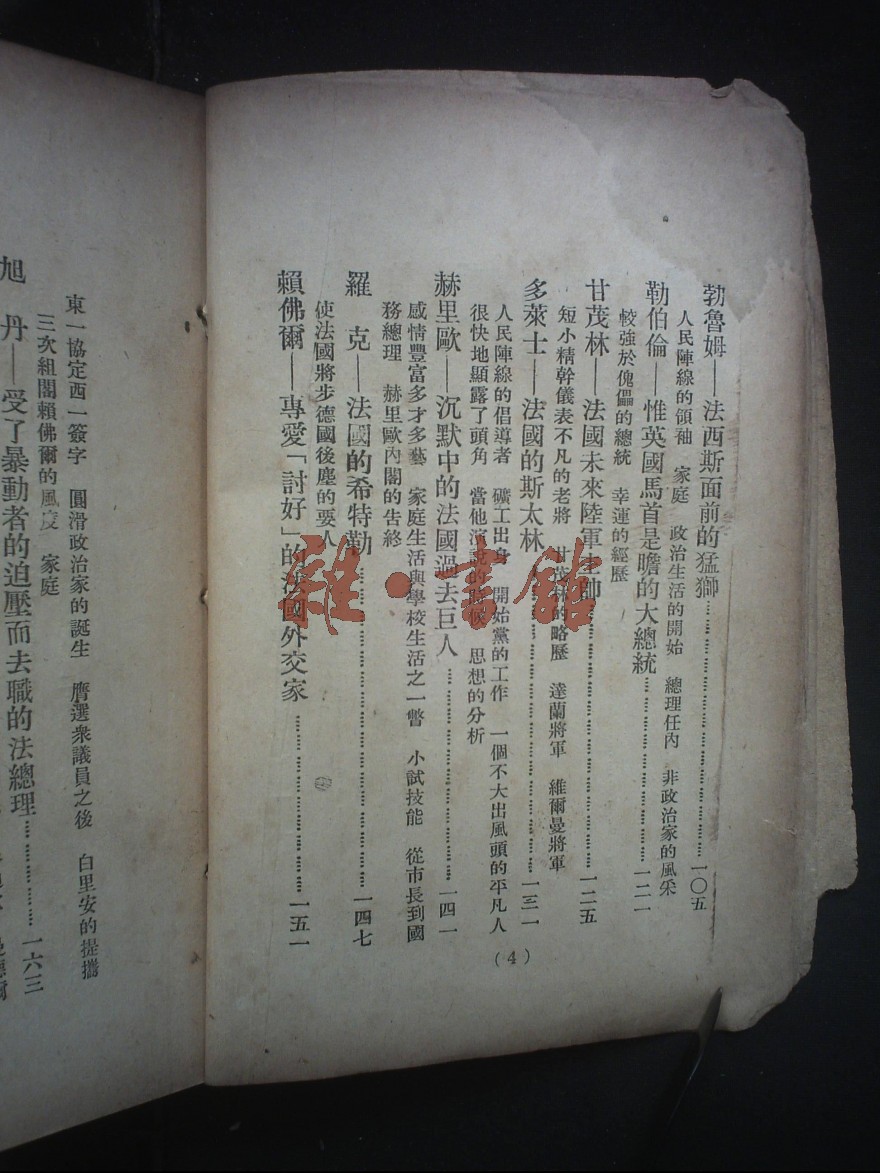 勃魯姆——法西斯面前的猛獅……一〇五
人民陣線的領袖　家庭　政治生活的開始　總理任內　非政治家的風采
勒伯倫——惟英國馬首是瞻的大總統……一二一
較強於傀儡的總統　幸運的經歷
甘茂林——法國未來陸軍主帥……一二五
短小精幹儀表不凡的老將　甘茂林的略歷　達蘭將軍　維爾曼將軍
多萊士——法國的斯太林……一三一
人民陣線的倡導者　礦工出身　開始黨的工作　一個不大出風頭的平凡人
很快地顯露了頭角　當他演說的時候　思想的分析
赫里歐——沉默中的法國過去巨人……一四一
感情豐富多才多藝　家庭生活與學校生活之一瞥　小試技能　從市長到國
務總理　赫里歐內閣的告終
羅　克——法國的希特勒……一四七
使法國將步德國後塵的要人
賴佛爾——專愛「討好」的法國外交家……一五一
（4）
東一協定西一簽字　圓滑政治家的誕生　膺選衆議員之後　白里安的提攜
三次組閣賴佛爾的風度　家庭
旭　丹——受了暴動者的迫壓而去職的法總理……一六三
雜·書館